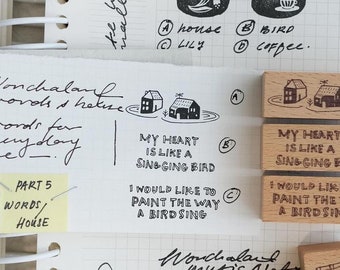 A house B BIRD
C LILY D COFFEE.
Wonderland
words & house
words for
everyday
A
B
C
MY HEART
IS LIKE A
SINGING BIRD
I WOULD LIKE TO
PAINT THE WAY
A BIRD SING
PART 5
WORDS,
HOUSE
MY HEART
IS LIKE A
SINGING BIRD
I WOULD LIKE TO
PAINT THE WAY
A BIRD SING
Wonderland